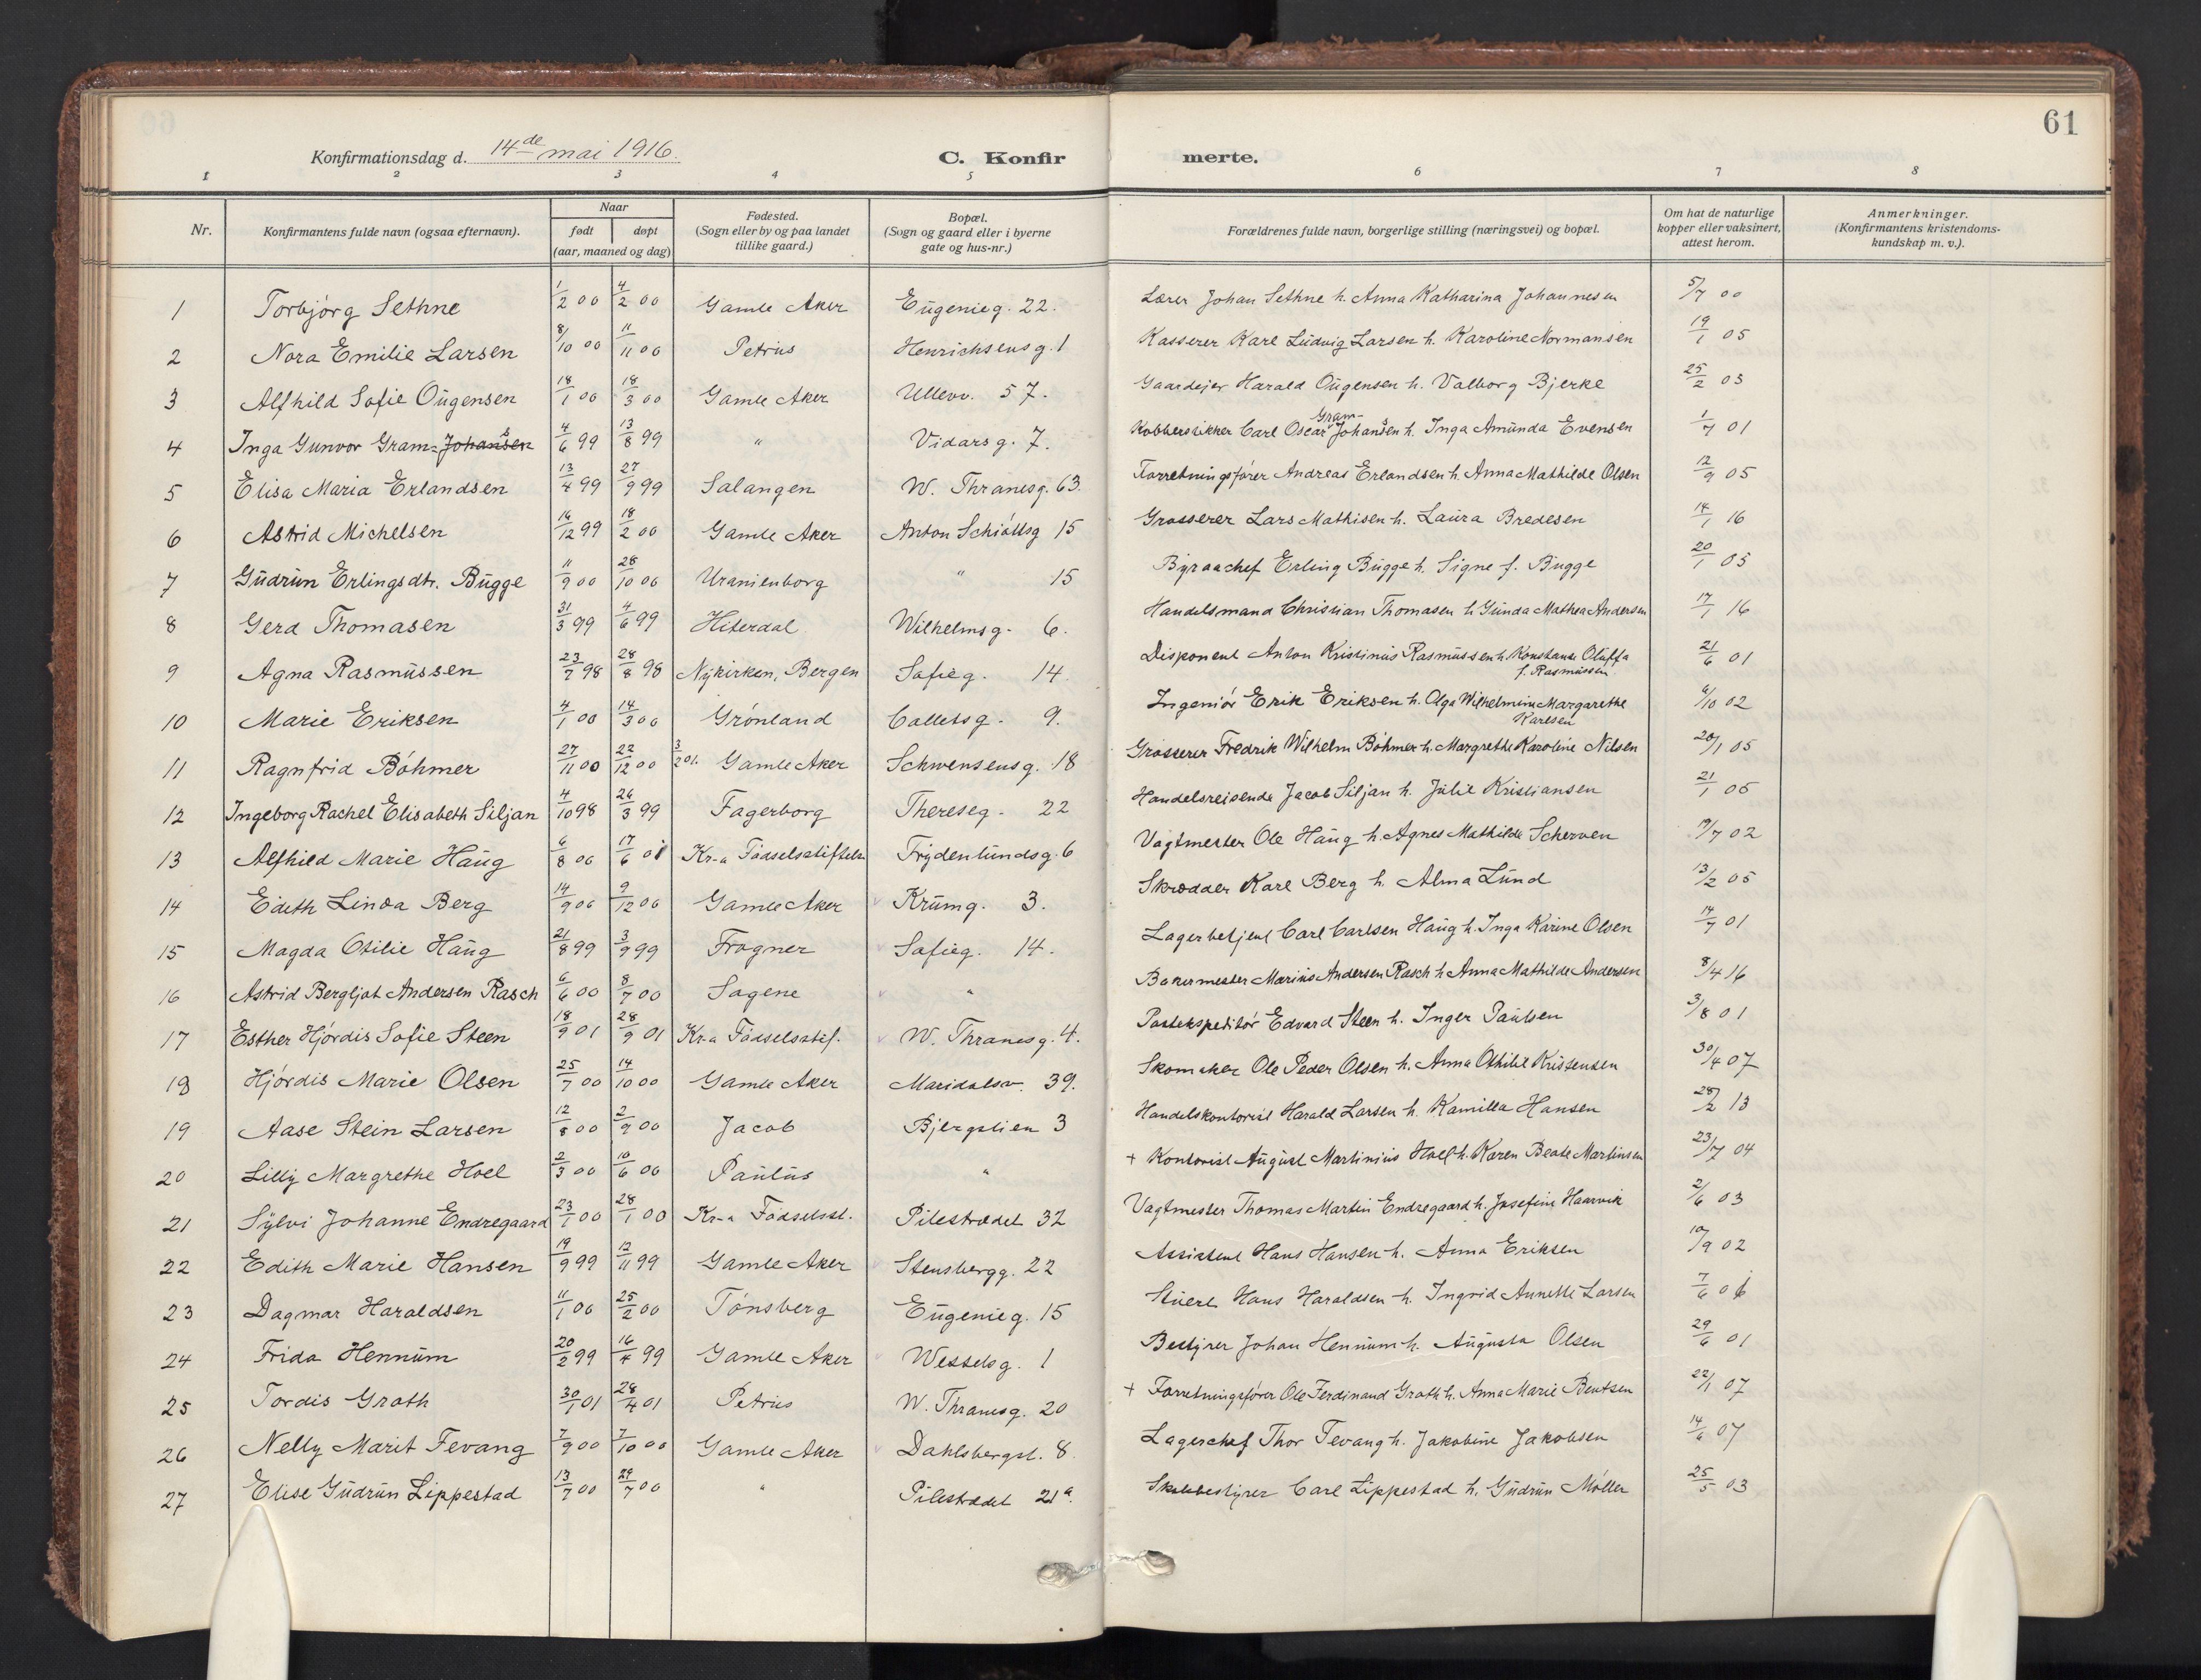 61
Konfirmationsdag d. 14de mai 1916.
C. Konfirmerte.
1 2 3 4 5 6 7 8
Nr.
Konfirmantens fulde navn (ogsaa efternavn).
Naar
født døpt
(aar, maaned og dag)
Fødested.
(Sogn eller by og paa landet
tillike gaard.)
Bopæl.
(Sogn og gaard eller i byerne
gate og hus-nr.)
Forældrenes fulde navn, borgerlige stilling (næringsvei) og bopæl.
Om hat de naturlige
kopper eller vaksinert,
attest herom.
Anmerkninger.
(Konfirmantens kristendoms-
kundskap m. v.).
1 Torbjörg Sethne 1/2 00 4/2 00 Gamle Aker Eugenieg. 22. Lærer Johan Sethne h. Anna Katharina Johannesen 5/7 00
2 Nora Emilie Larsen 8/10 00 11/11 00 Petrus Henrichsensg. 1 Kasserer Karl Ludvig Larsen h. Karoline Normansen 19/1 05
3 Alfhild Sofie Ougensen 18/1 00 18/3 00 Gamle Aker Ullevv. 57. Gaardejer Harald Ougensen h. Valborg Bjerke 25/2 03
4 Inga Gunvor Gram-Johansen 4/6 99 13/8 99 " Vidarsg. 7. Kobberstikker Carl Oscar Gram-Johansen h. Inga Amunda Evensen 1/7 01
5 Elisa Maria Erlandsen 13/4 99 27/9 99 Salangen W. Thranesg. 63. Forretningsfører Andreas Erlandsen h. Anna Mathilde Olsen 12/9 05
6 Astrid Michelsen 16/12 99 18/2 00 Gamle Aker Anton Schiöttsg 15 Grosserer Lars Mathisen h. Laura Bredesen 14/1 16
7 Gudrun Erlingsdtr. Bugge 11/9 00 28/10 00 Uranienborg " 15 Byraachef Erling Bugge h. Signe f. Bugge 20/1 05
8 Gerd Thomasen 31/3 99 4/6 99 Hiterdal Wilhelmsg. 6. Handelsmand Christian Thomasen h. Gunda Mathea Andersen 17/1 16
9 Agna Rasmussen 23/7 98 28/8 98 Nykirken, Bergen Sofieg. 14. Disponent Anton Kristinius Rasmussen h. Konstanse Oluffa
f. Rasmussen 21/6 01
10 Marie Eriksen 4/1 00 14/3 00 Grönland Colletsg. 9. Ingeniör Erik Eriksen h. Olga Wilhelmine Margarethe
Karlsen 6/10 02
11 Ragnfrid Böhmer 27/11 00 22/12 00 3/2 01. Gamle Aker Schwensensg. 18 Grosserer Fredrik Wilhelm Böhmer h. Margrethe Karoline Nilsen 20/1 05
12 Ingeborg Rachel Elisabeth Siljan 4/10 98 26/3 99 Fagerborg Thereseg. 22 Handelsreisende Jacob Siljan h. Julie Kristiansen 21/1 05
13 Alfhild Marie Haug 6/8 00 17/6 01 Kr-a Födselsstiftelse Frydenlundsg. 6 Vagtmester Ole Haug h. Agnes Mathilde Scherven 19/7 02
14 Edith Linda Berg 14/9 00 9/12 00 Gamle Aker Krumg. 3. Skrædder Karl Berg h. Alma Lund 13/2 05
15 Magda Otilie Haug 21/8 99 3/9 99 Frogner Sofieg. 14. Lagerbetjent Carl Carlsen Haug h. Inga Karine Olsen 14/7 01
16 Astrid Bergljot Andersen Rasch 6/6 00 8/7 00 Sagene " Bakermester Marius Andersen Rasch h. Anna Mathilde Andersen 8/4 16
17 Esther Hjördis Sofie Steen 18/9 01 28/9 01 Kr-a Födselsstif. W. Thranesg. 4. Postekspeditör Edvard Steen h. Inger Paulsen 3/8 01
18 Hjördis Marie Olsen 25/7 00 14/10 00 Gamle Aker Maridalsv. 39. Skomaker Ole Peder Olsen h. Anna Othilie Kristensen 30/4 07
19 Aase Stein Larsen 12/8 00 2/9 00 Jacob Bjergstien 3 Handelskontorist Harald Larsen h. Kamilla Hansen 28/2 13
20 Lilly Margrethe Hoel 2/3 00 10/6 00 Paulus " + Kontorist August Martinius Hoel h. Karen Beate Martinsen 23/7 04
21 Sylvi Johanne Endregaard 23/1 00 28/1 00 Kr-a Födselsst. Pilestrædet 32 Vagtmester Thomas Martin Endregaard h. Josefine Haarvik 2/6 03
22 Edith Marie Hansen 19/9 99 12/11 99 Gamle Aker Stensbergg. 22 Assistent Hans Hansen h. Anna Eriksen 10/9 02
23 Dagmar Haraldsen 11/1 00 25/2 00 Tönsberg Eugenieg. 15 Stuert Hans Haraldsen h. Ingrid Annette Larsen 7/6 01
24 Frida Hennum 20/2 99 16/4 99 Gamle Aker Wesselsg. 1 Bestyrer Johan Hennum h. Augusta Olsen 29/6 01
25 Tordis Groth 30/1 01 28/4 01 Petrus W. Thranesg. 20 + Forretningsfører Ole Ferdinand Groth h. Anna Marie Bentsen 22/1 07
26 Nelly Marit Fevang 7/9 00 7/10 00 Gamle Aker Dahlsbergst. 8 Lagerchef Thor Fevang h. Jakobine Jakobsen 14/6 07
27 Elise Gudrun Lippestad 13/7 00 29/7 00 " Pilestrædet 21a. Skolebestyrer Carl Lippestad h. Gudrun Möller 25/5 03